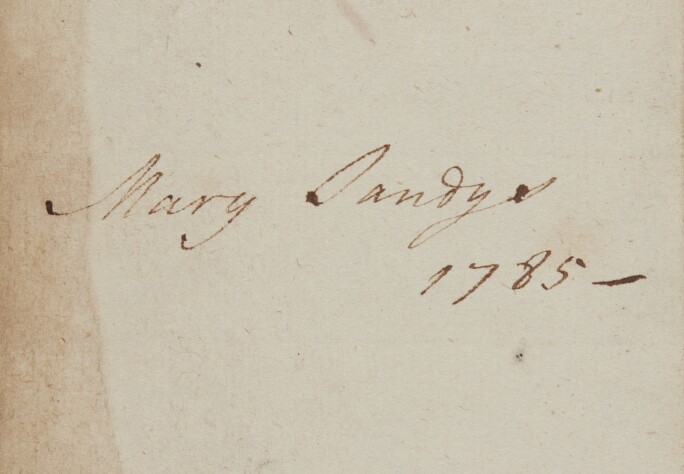 Mary Sandys
1785-